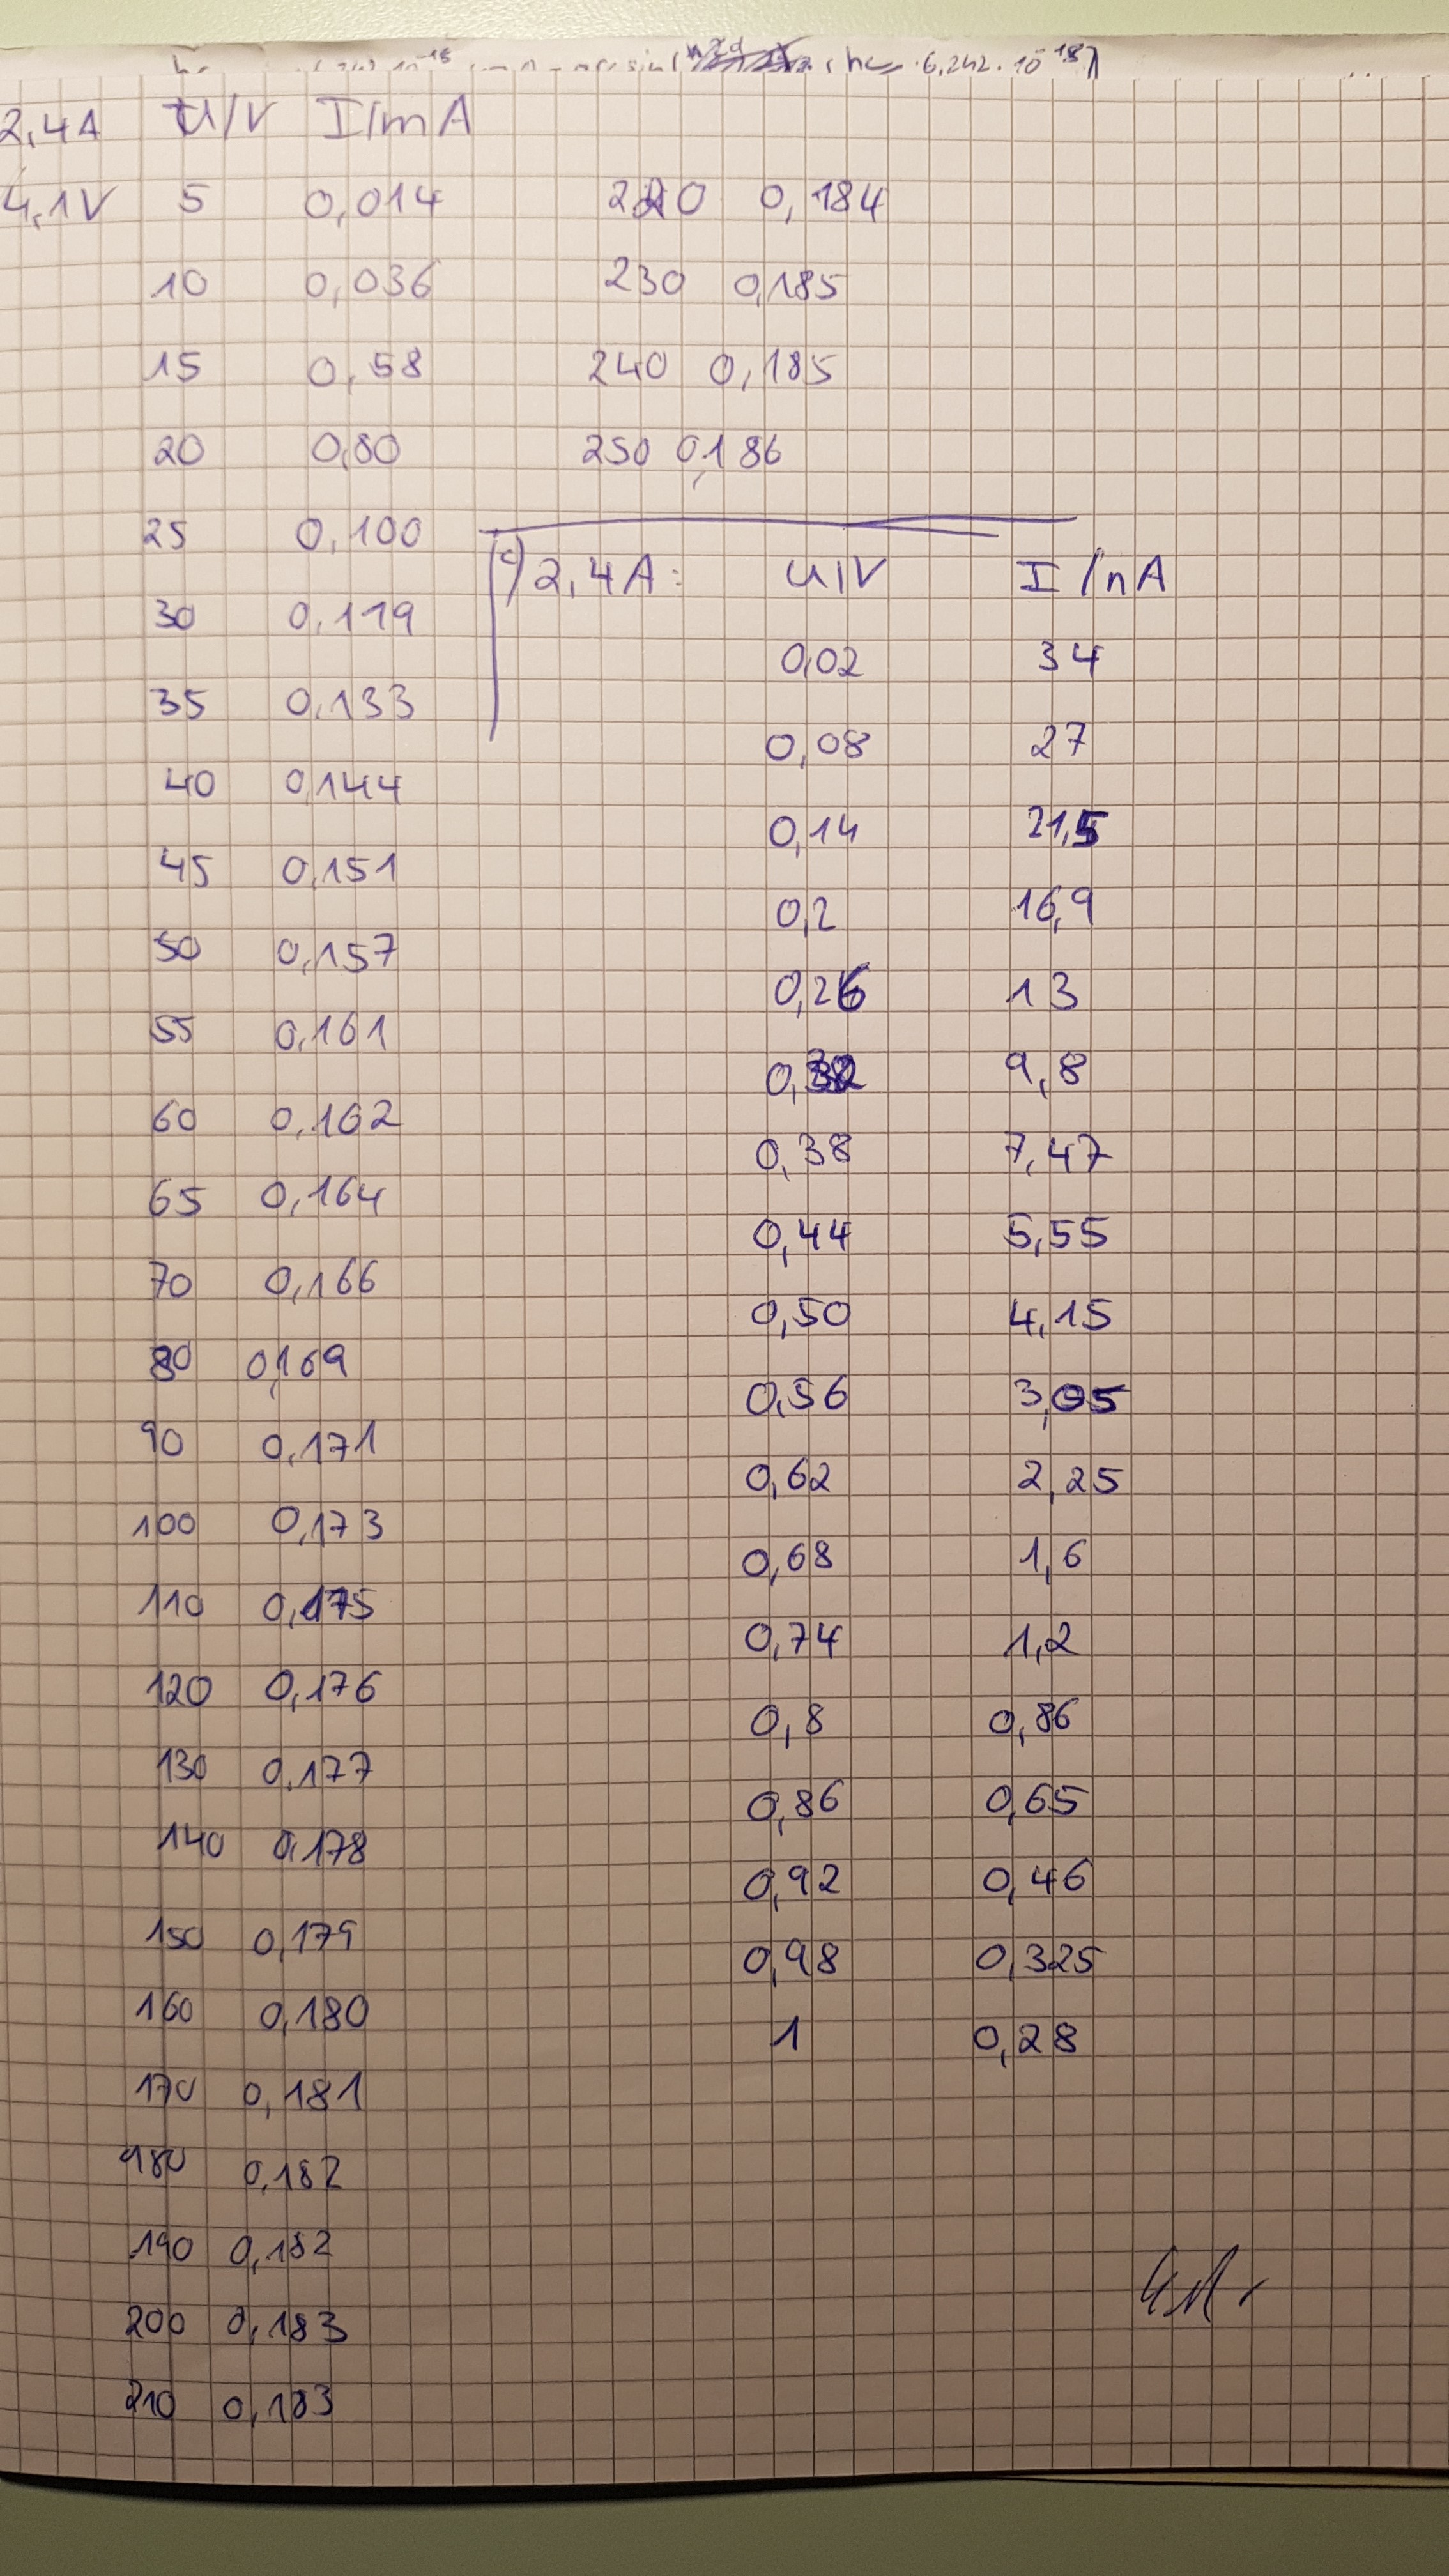 2,4A U/V I/mA
4,1V 5 0,014
10 0,036
15 0,58
20 0,80
25 0,100
30 0,119
35 0,133
40 0,144
45 0,151
50 0,157
55 0,161
60 0,162
65 0,164
70 0,166
80 0,169
90 0,171
100 0,173
110 0,175
120 0,176
130 0,177
140 0,178
150 0,179
160 0,180
170 0,181
180 0,182
190 0,182
200 0,183
210 0,183
220 0,184
230 0,185
240 0,185
250 0,186
c) 2,4A: U/V I/nA
0,02 34
0,08 27
0,14 21,5
0,2 16,9
0,26 13
0,32 9,8
0,38 7,47
0,44 5,55
0,50 4,15
0,56 3,05
0,62 2,25
0,68 1,6
0,74 1,2
0,8 0,86
0,86 0,65
0,92 0,46
0,98 0,325
1 0,28